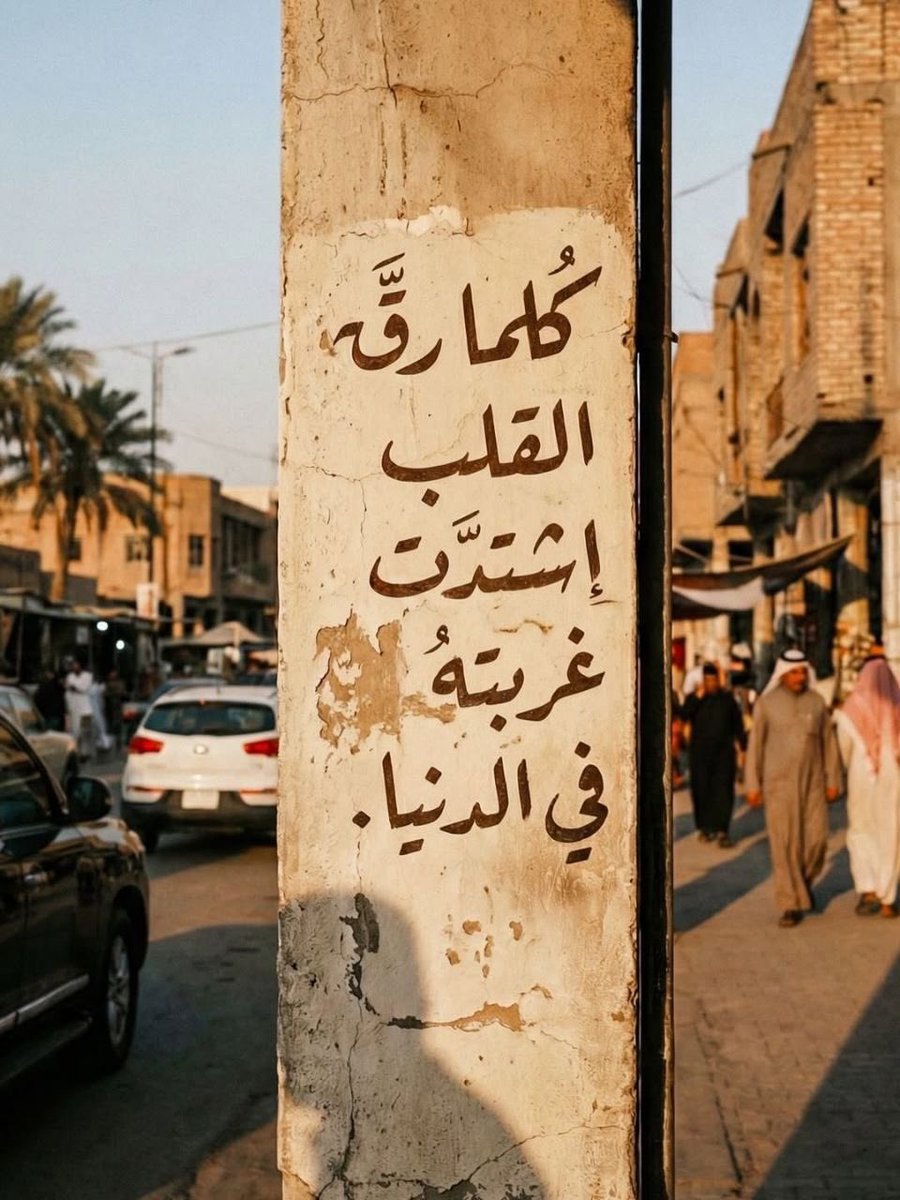 كُلما رقَّ
القلب
إشتدَّت
غربتهُ
في الدنيا.